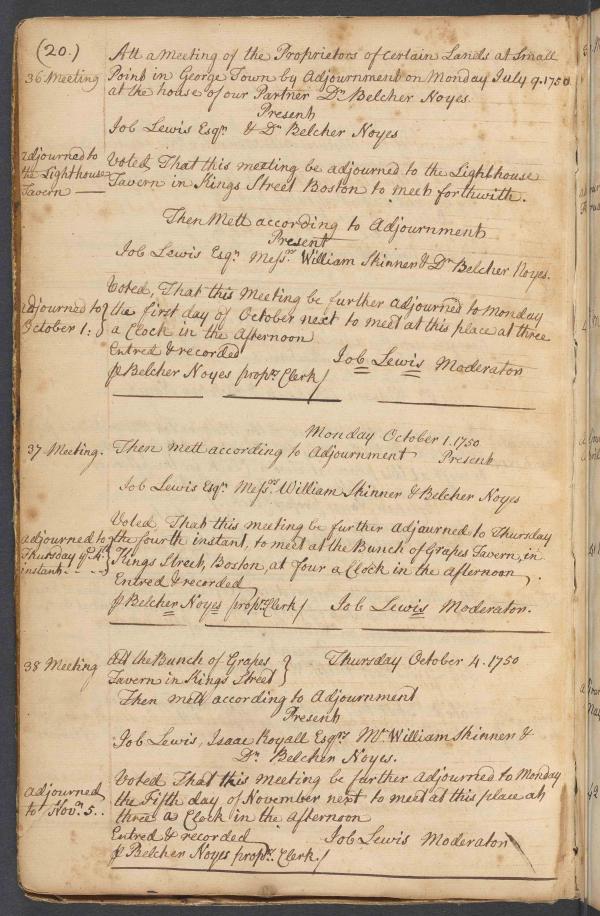 (20.)
36 Meeting
Att a Meeting of the Proprietors of Certain Lands at Small
Point in George Town by Adjournment on Monday July 9. 1750
at the house of our Partner Dr. Belcher Noyes.
Present
Job Lewis Esqr. & Dr Belcher Noyes
adjourned to
the Lighthouse
Tavern
Voted, That this meeting be adjourned to the Lighthouse
Tavern in Kings Street Boston to meet forthwith.
Then Mett according to Adjournment
Present
Job Lewis Esqr. Messrs. William Skinner & Dr Belcher Noyes.
adjourned to
October 1:
Voted, That this Meeting be further adjourned to Monday
the first day of October next to meet at this place at three
a Clock in the Afternoon
Entred & recorded
Job Lewis Moderator
Belcher Noyes proprs. Clerk
Monday October 1. 1750
37 Meeting.
Then mett according to Adjournment Present
Job Lewis Esqr. Messrs. William Skinner & Belcher Noyes
adjourned to
Thursday ye 4th.
instant
Voted That this meeting be further adjourned to Thursday
the fourth instant, to meet at the Bunch of Grapes Tavern, in
Kings Street, Boston, at four a Clock in the afternoon.
Entred & recorded
Belcher Noyes proprs. Clerk Job Lewis Moderator.
38 Meeting
Att the Bunch of Grapes
Tavern in Kings Street
Thursday October 4. 1750
Then mett according to Adjournment
Present
Job Lewis, Isaac Royall Esqrs Mr. William Skinner &
Dr. Belcher Noyes.
Adjourned
to Novr. 5.
Voted That this meeting be further adjourned to Monday
the Fifth day of November next to meet at this place at
three a Clock in the afternoon
Entred & recorded Job Lewis Moderator
Belcher Noyes proprs. Clerk.